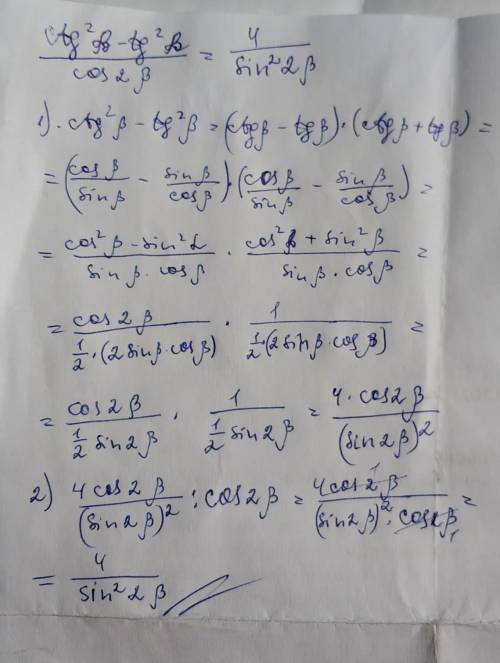 (ctg²β - tg²β)/(cos2β) = 4/(sin²2β)
1). ctg²β - tg²β = (ctgβ - tgβ)·(ctgβ + tgβ) =
= (cosβ/sinβ - sinβ/cosβ)·(cosβ/sinβ - sinβ/cosβ) =
= (cos²β - sin²α)/(sinβ·cosβ) · (cos²β + sin²β)/(sinβ·cosβ) =
= cos2β/(1/2·(2sinβ·cosβ)) · 1/(1/2·(2sinβ·cosβ)) =
= cos2β/(1/2 sin2β) · 1/(1/2 sin2β) = 4·cos2β/(sin2β)²
2) 4cos2β/(sin2β)² : cos2β = 4cos2β/((sin2β)²·cos2β) =
= 4/(sin²2β)